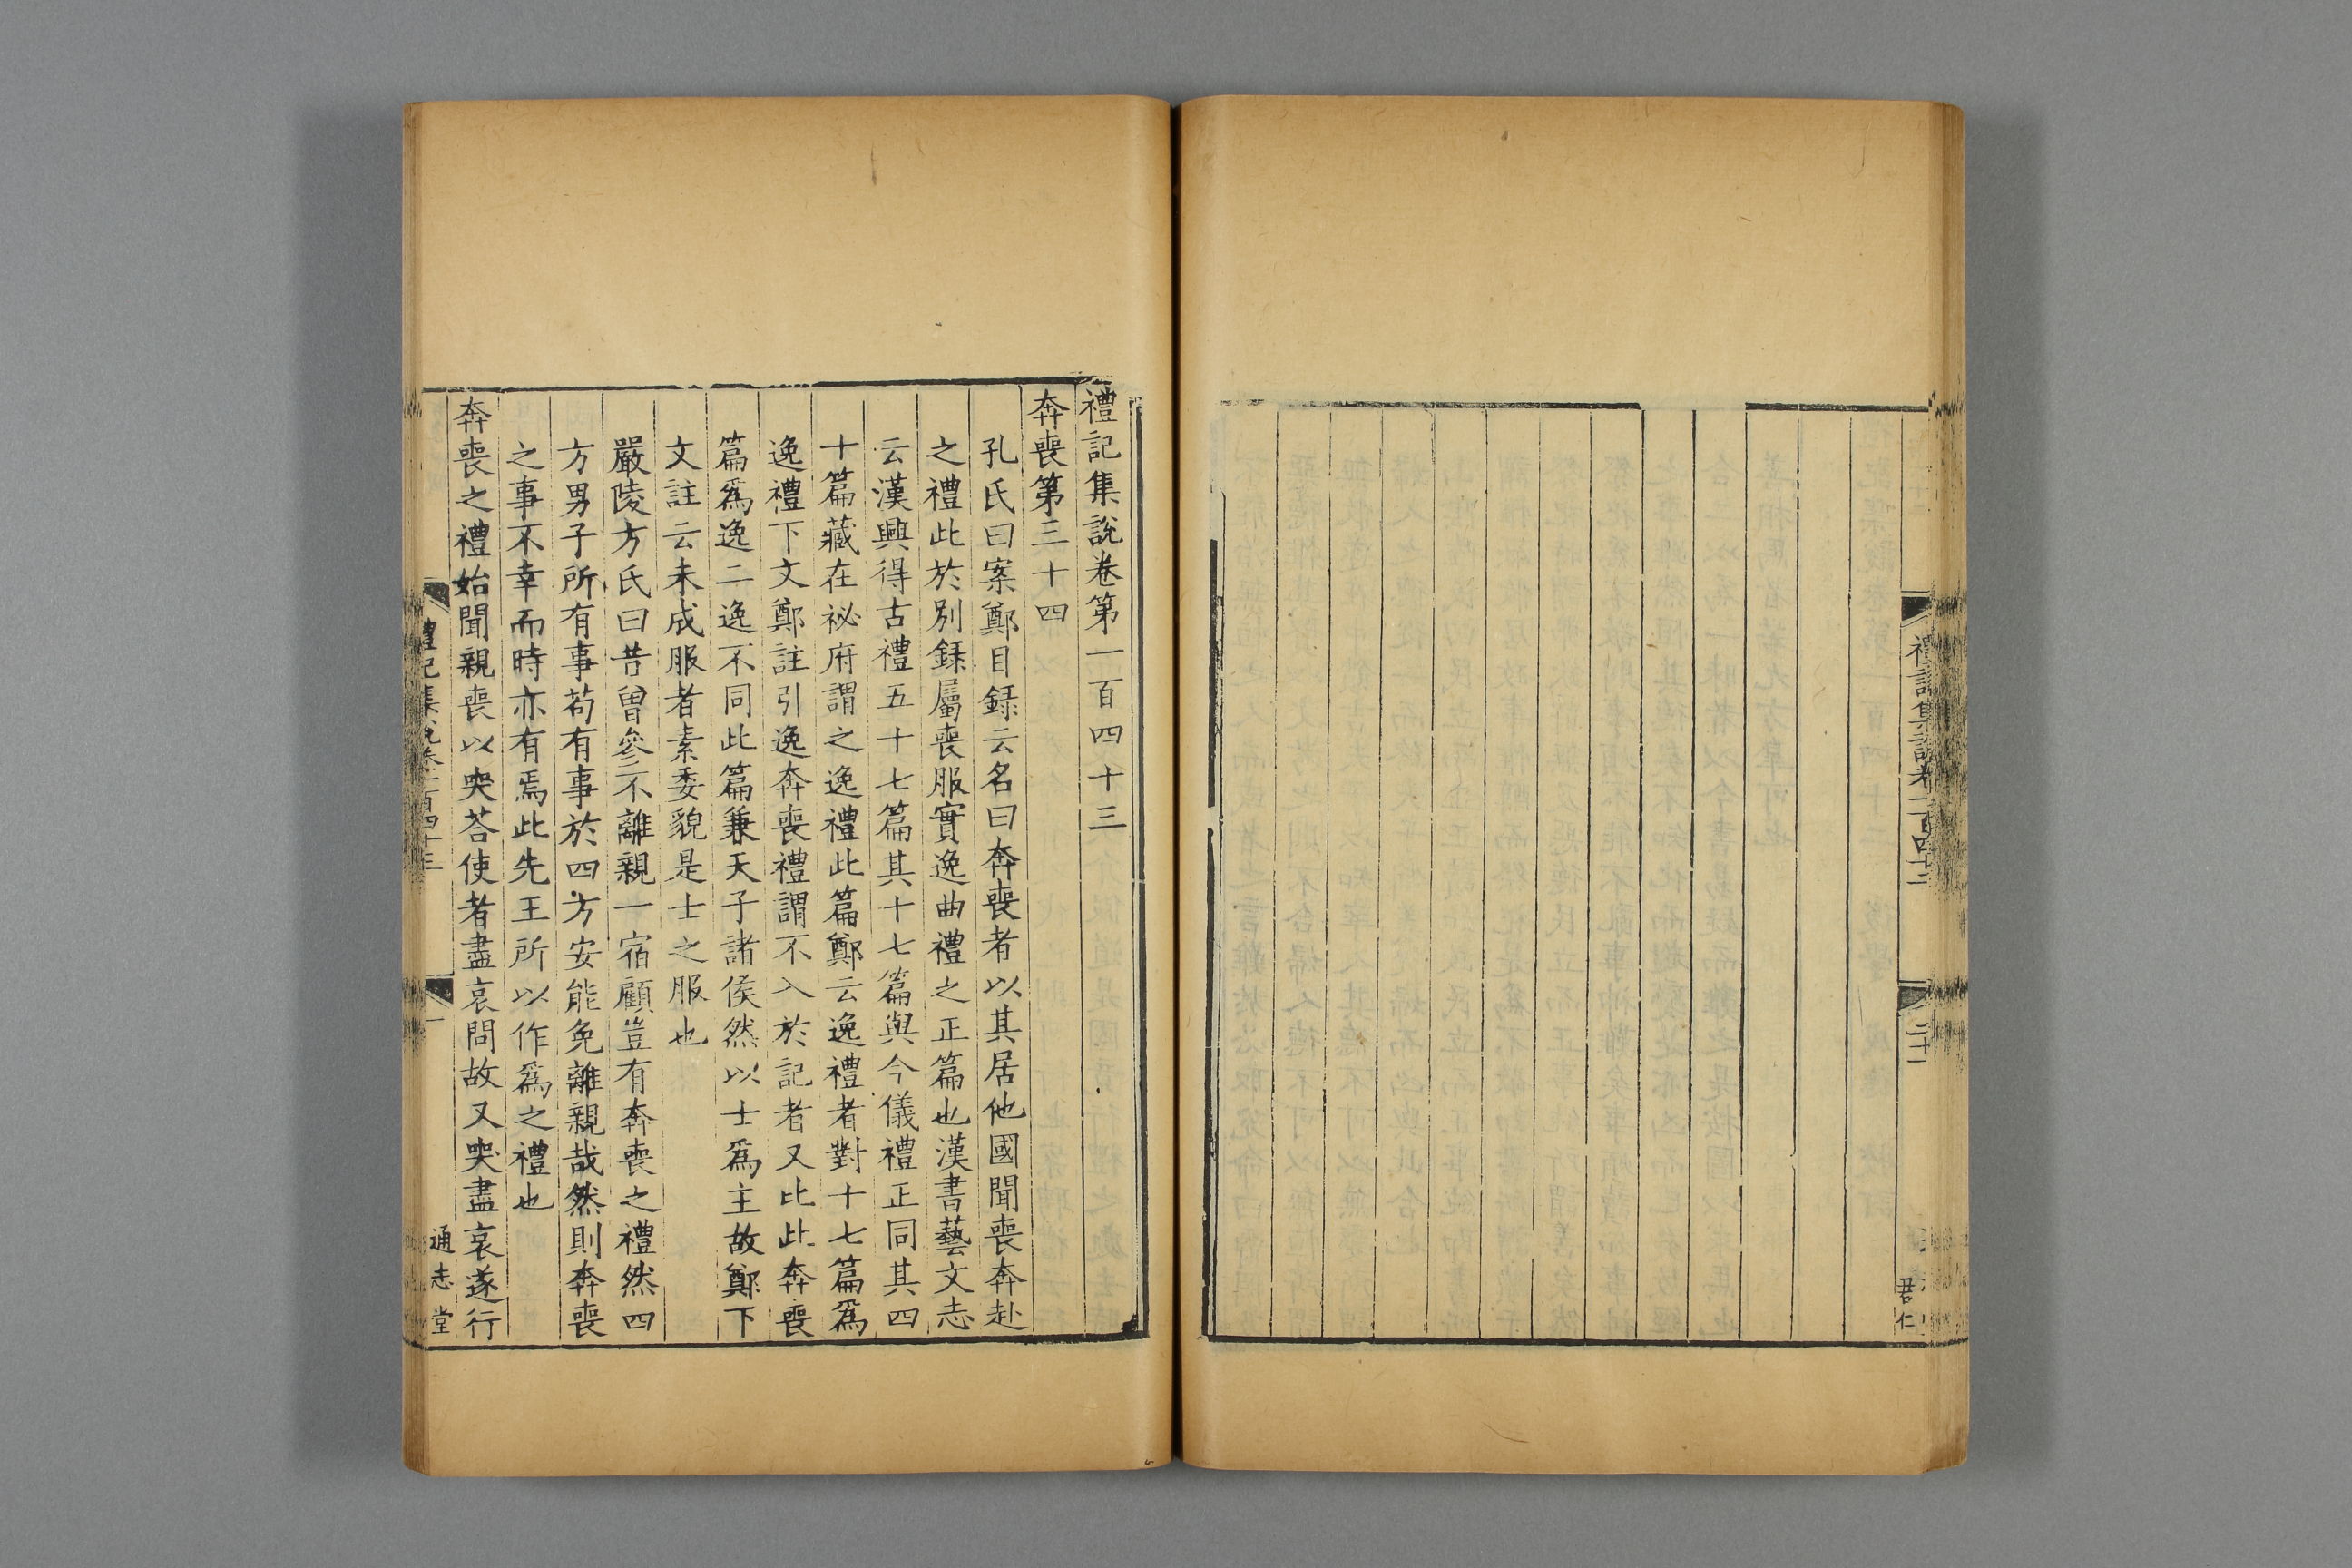 禮記集說卷一百四十二
二十一
君仁
禮記集說卷第一百四十三
奔喪第三十四
孔氏曰案鄭目錄云名曰奔喪者以其居他國聞喪奔赴
之禮此於別錄屬喪服實逸曲禮之正篇也漢書藝文志
云漢興得古禮五十七篇其十七篇與今儀禮正同其四
十篇藏在祕府謂之逸禮此篇鄭云逸禮者對十七篇爲
逸禮下文鄭註引逸奔喪禮謂不入於記者又比此奔喪
篇爲逸二逸不同此篇兼天子諸侯然以士爲主故鄭下
文註云未成服者素委貌是士之服也
嚴陵方氏曰昔曾參不離親一宿顧豈有奔喪之禮然四
方男子所有事苟有事於四方安能免離親哉然則奔喪
之事不幸而時亦有焉此先王所以作爲之禮也
奔喪之禮始聞親喪以哭荅使者盡哀問故又哭盡哀遂行
禮記集說卷一百四十三
一
通志堂